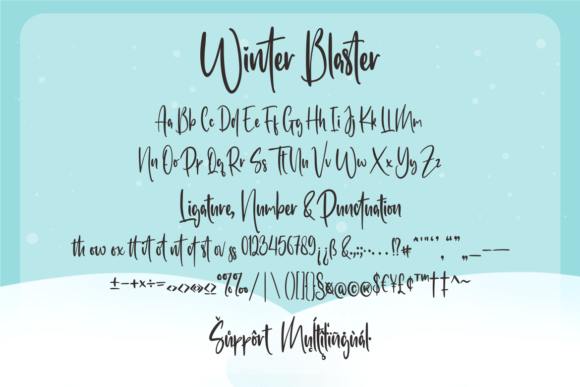 Winter Blaster
Aa Bb Cc Dd Ee Ff Gg Hh Ii Jj Kk Ll Mm
Nn Oo Pp Qq Rr Ss Tt Uu Vv Ww Xx Yy Zz
Ligature, Number & Punctuation
th ow ox tt it ot nt et st ov ss 0123456789¡¿ß &.,:;·...!?#^'"‘’,“”„_–—
±−+×÷=‹›«»≤≥ %‰/|\()[]{}§¤@©®*$€¥£¢™†‡^~
Šúppôrt Multilingùál